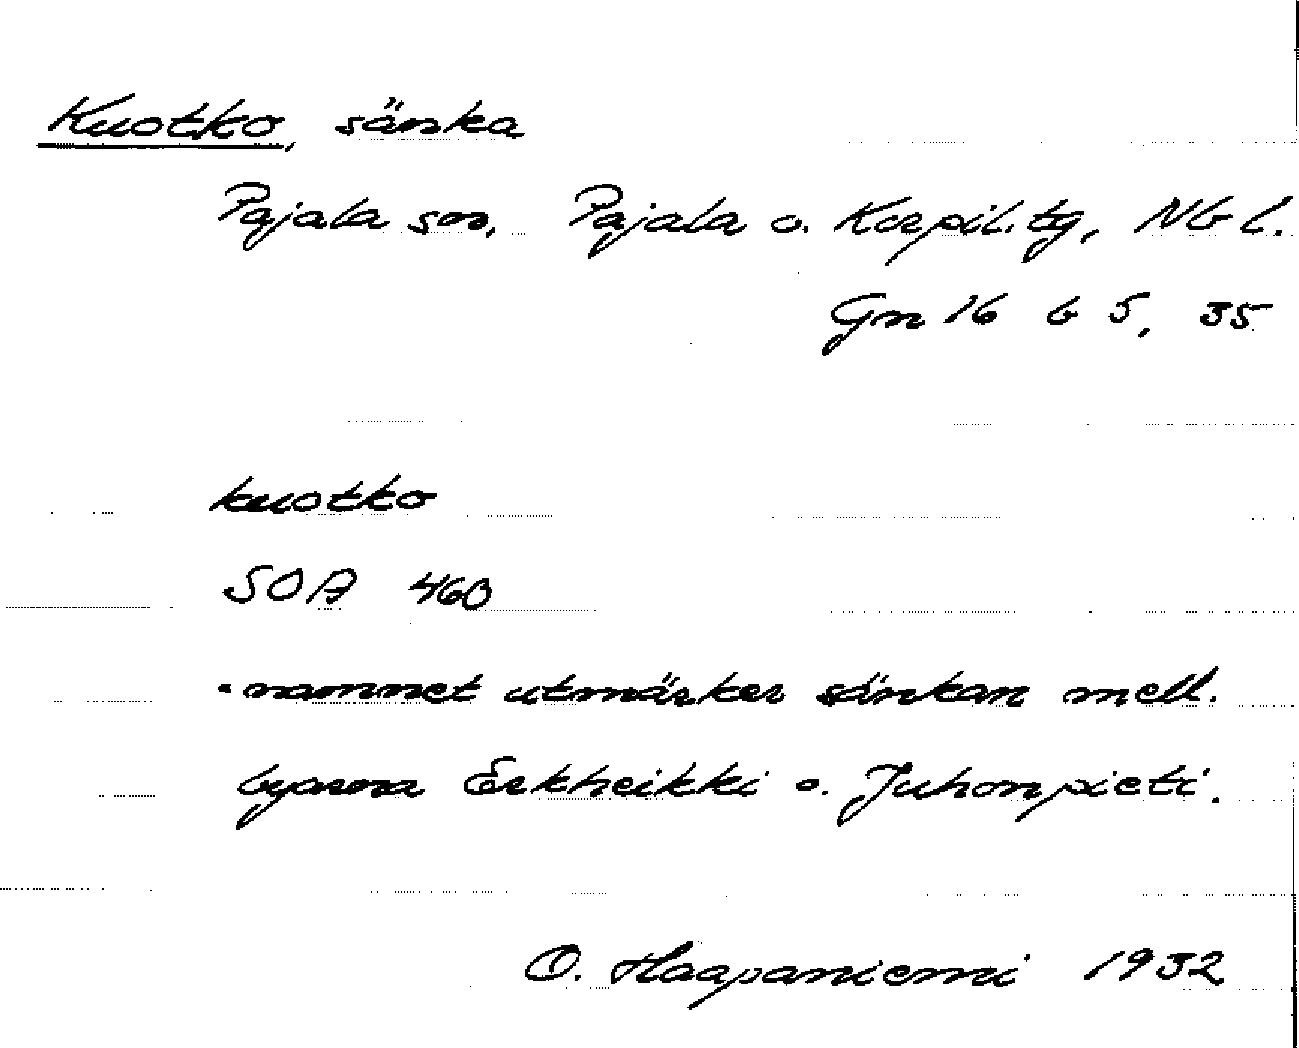 Kuotko, sänka
Pajala sn, Pajala o. Korpil. tg, Nb l.
Gn 16 b 5, 35
kuotko
SOA 460
• namnet utmärker sänkan mell.
byarna Erkheikki o. Juhonpieti.
O. Haapaniemi 1932